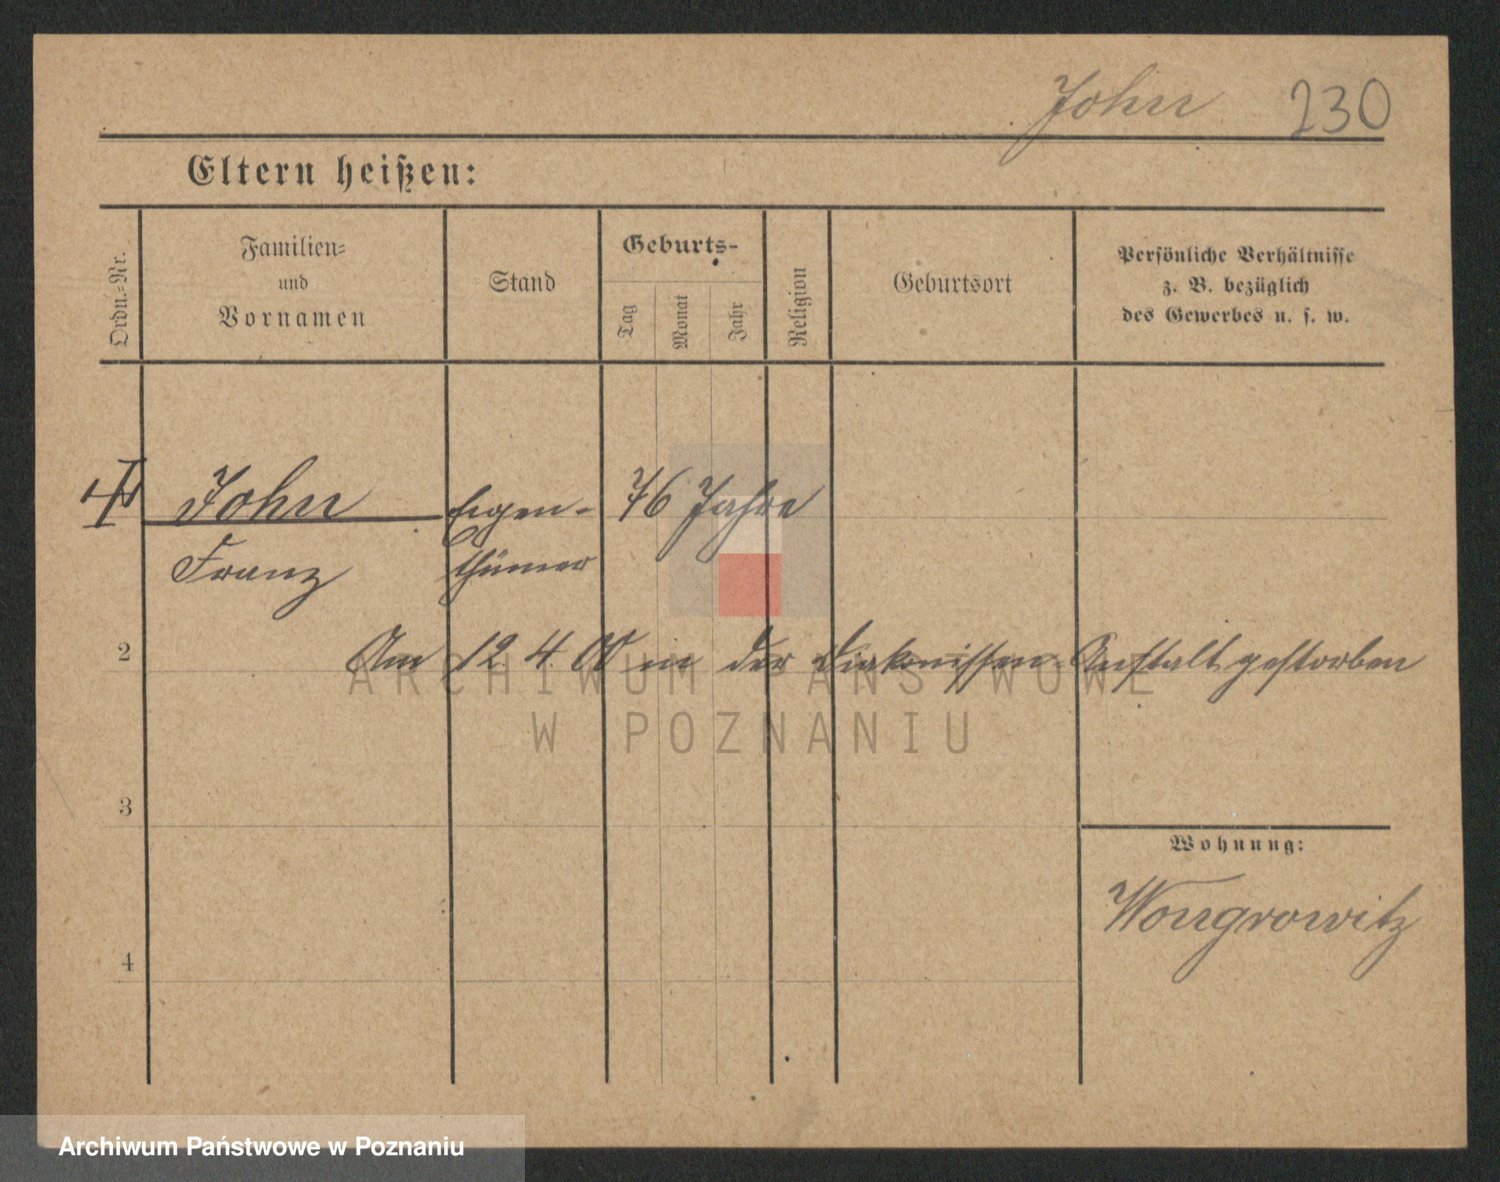 John 230
Eltern heißen:
Ordn.-Nr.
Familien-
und
Vornamen
Stand
Geburts-
Tag
Monat
Jahr
Religion
Geburtsort
Persönliche Verhältnisse
z. B. bezüglich
des Gewerbes u. s. w.
John Eigen- 76 Jahre
Franz thümer
2 Am 12 4. 00 in der Diakonissen Anstalt gestorben
ARCHIWUM PAŃSTWOWE
W POZNANIU
3
Wohnung:
Wongrowitz
4
Archiwum Państwowe w Poznaniu